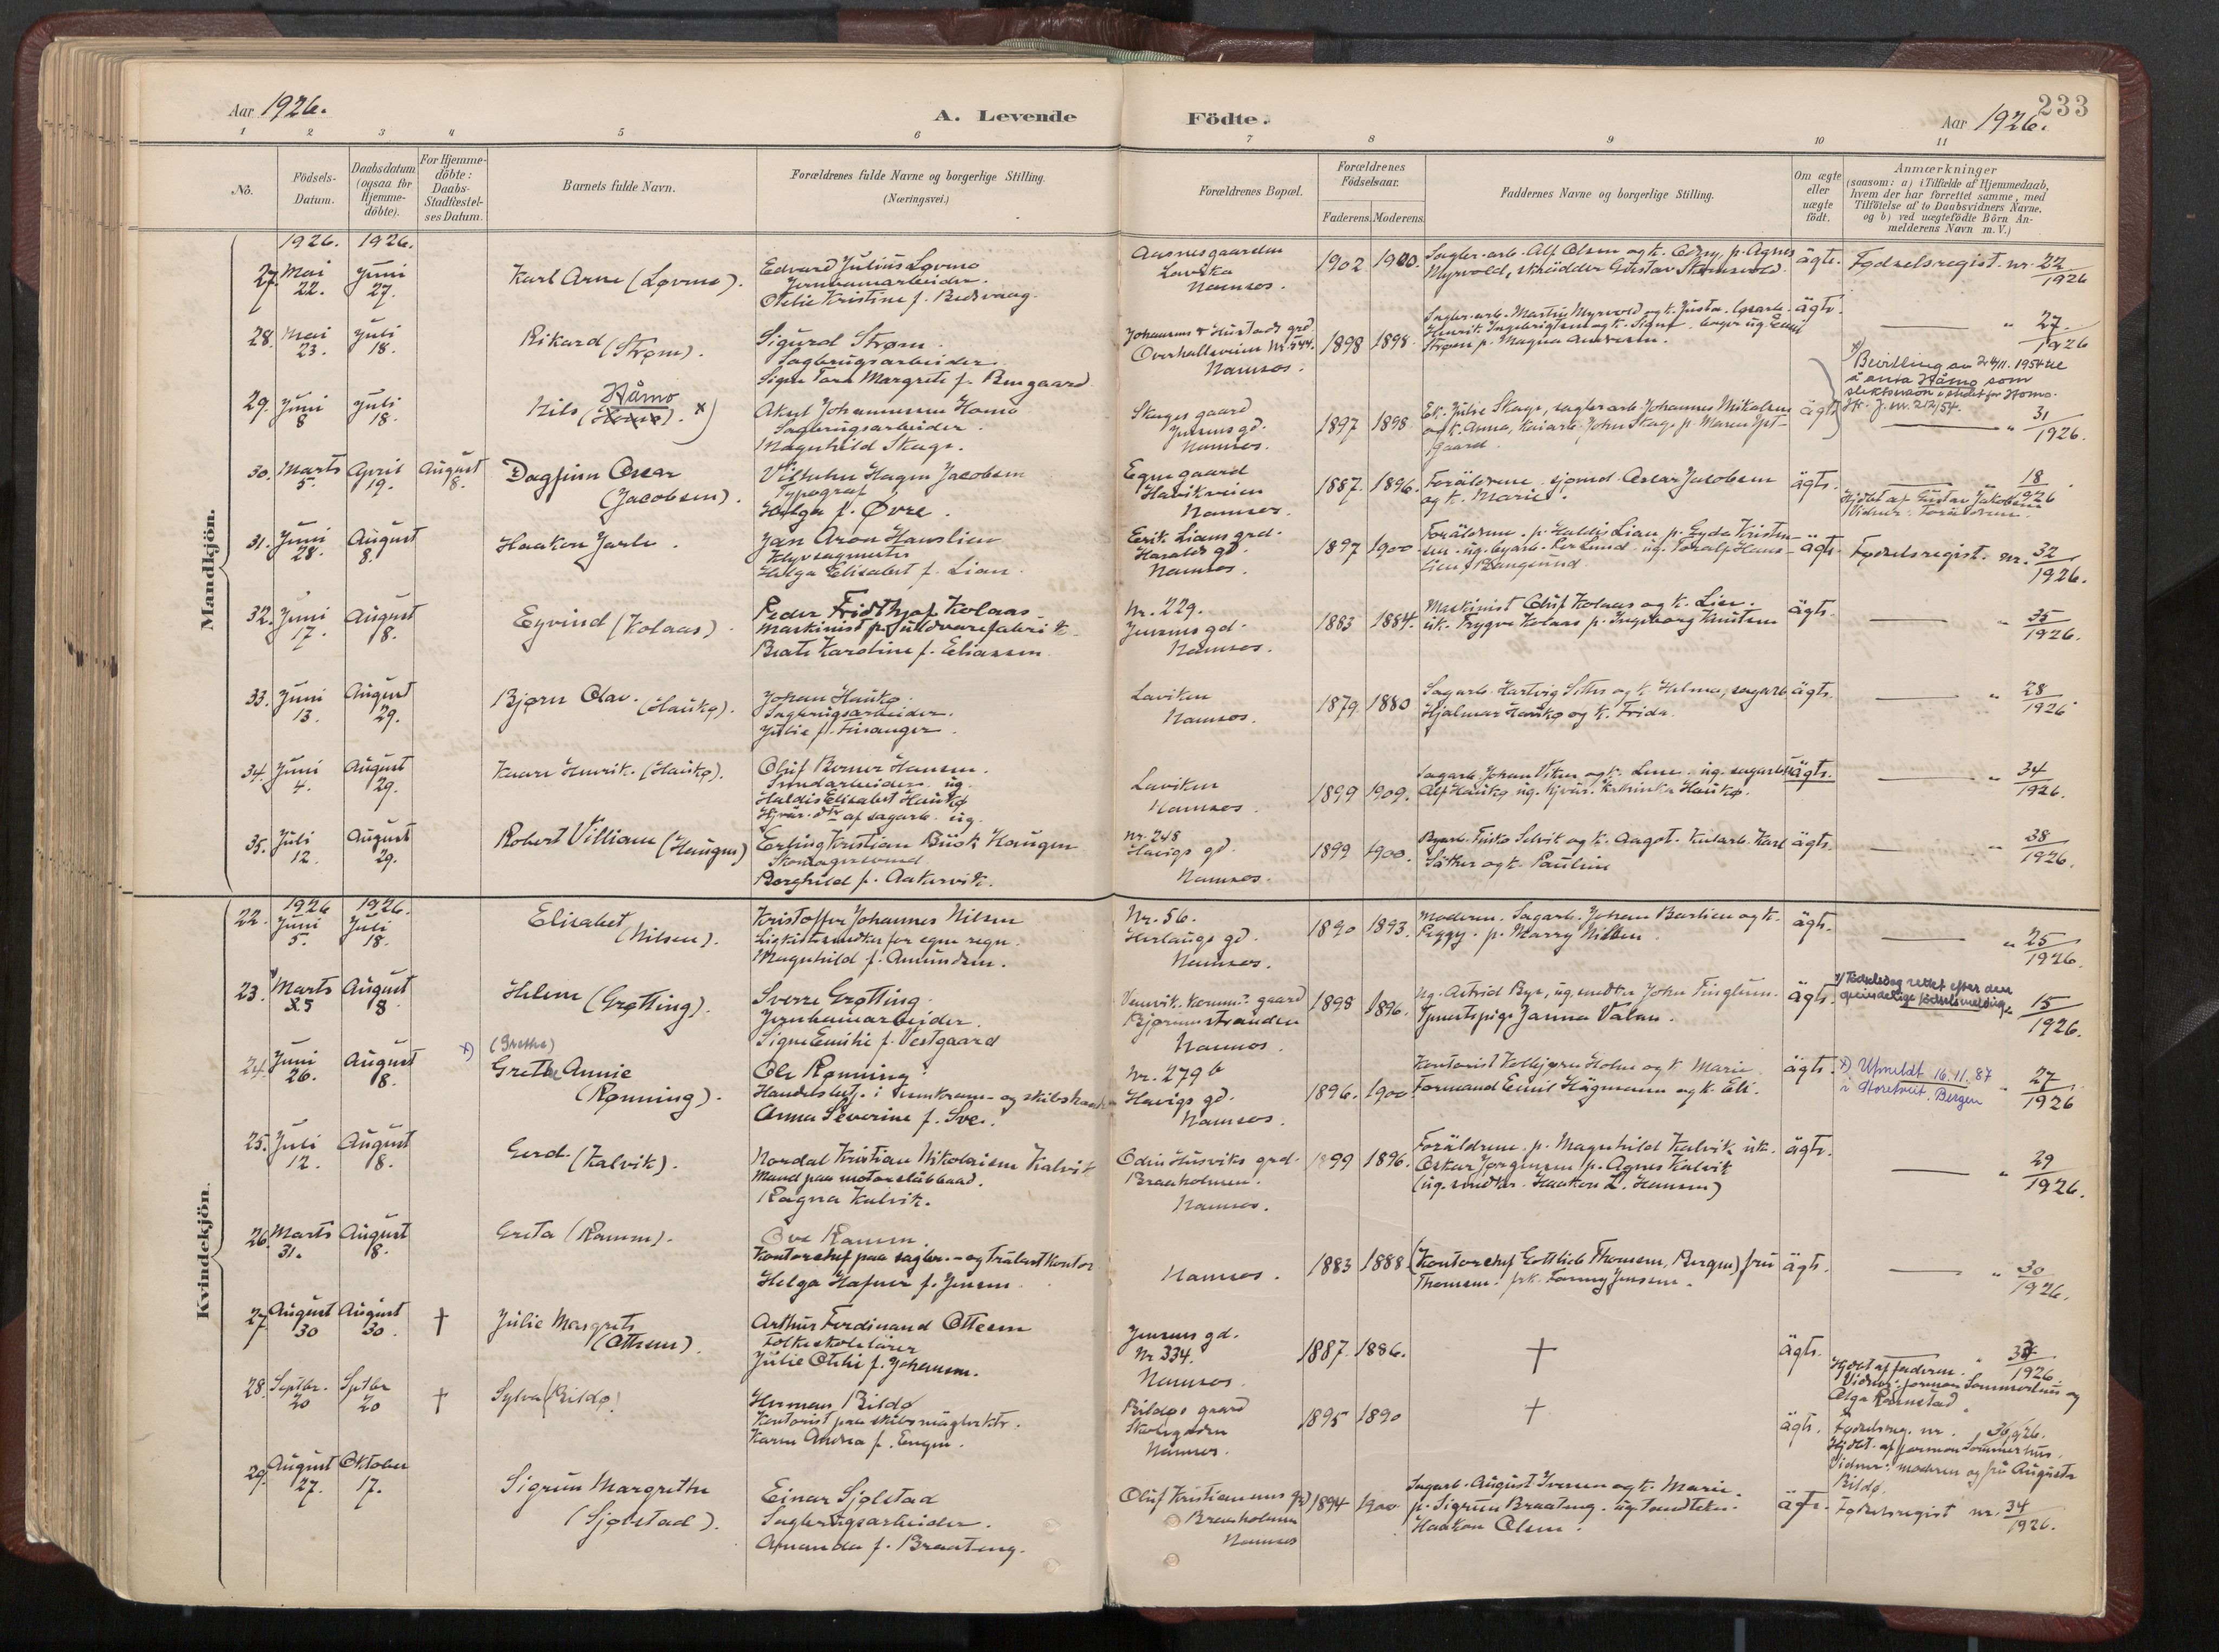 233
Aar 1926.
A. Levende
Födte.
Aar 1926.
1 2 3 4 5 6 7 8 9 10 11
No.
Födsels-
Datum.
Daabsdatum
(ogsaa for
Hjemme-
döbte).
For Hjemme-
döbte:
Daabs-
Stadfæstel-
ses Datum.
Barnets fulde Navn.
Forældrenes fulde Navne og borgerlige Stilling.
(Næringsvei.)
Forældrenes Bopæl.
Forældrenes
Födselsaar.
Faderens. Moderens.
Faddernes Navne og borgerlige Stilling.
Om ægte
eller
uægte
født.
Anmærkninger
(saasom: a) i Tilfælde af Hjemmedaab,
hvem der har forrettet samme, med
Tilföielse af to Daabsvidners Navne.
og b) ved uægtefödte Börn An-
melderens Navn m. V.)
Mandkjön.
1926. 1926.
27. Mai 22. Juni 27.
Karl Arne (Løvmo).
Edvard Julius Løvmo
Jernbanearbeider.
Otelie Kristine f. Bedsvaag.
Aasnesgaarden
Lavika
Namsos.
1902 1900.
Sagbr. arb. Alf Olsen og k. p. Agnes
Myrvold, skrädder Gustav
ägte.
Fødselsregist. nr. 22/1926
28. Mai 23. Juli 18.
Rikard (Strøm).
Sigurd Strøm.
Sagbrugsarbeider
Signe Tora Margrete f. Rengaard
Johansens & Hustads grd.
Overhallsveien Nr. 544.
Namsos.
1898 1898.
Sagbr. arb. Martin Myrvold og k.
Henrik Ingebrigtsen og k. Signe.
Strøm p. Magna Andresen.
ägte.
" 27./1926
29. Juni 8 Juli 18.
Nils (Homo). x)
Håmo
Aksel Johannessen Homo
Sagbrugsarbeider.
Magnhild Skage.
Skages gaard
Jensens gd.
Namsos.
1897 1898
Ek. Julie Skage, sagbr. arb. Johannes Mikalsen
og k. Anna, kaiarb. John Skage p. Maren Yst-
gaard.
ägte
x) Bevilling av 24/11. 1954 til
å anta Håmo som
slektsnavn i stedet for Homo.
Jk. J. nr. 212/54.
" 31/1926.
30. Marts 5. April 19. August 8.
Dagfinn Oscar
(Jacobsen).
Vilhelm Hagen Jacobsen
Typograf
Helga f. Øvre.
Egnegaard
Havikveien
Namsos.
1887. 1896.
Foräldrene. sjømd. Oscar Jacobsen
og k. Marie.
ägte.
" 18/1926.
Hjdbt af Gustav Jakobsen
Vidner: Foräldrene.
31. Juni 28. August 8.
Haakon Jarle.
Jan Aron Hauslien
Klyvsagmester
Helga Elisabet f. Lian.
Eerik Lians grd.
Haralds gd.
Namsos.
1897 1900
Foräldrene. p. Haldis Lian p. Gyda Kristen-
sen. ug. byarb. Per Lund. ug. Toralf Haus-
lien, Spangmud
ägte.
Fødselsregist. nr. 32/1926.
32. Juni 17. August 8.
Eyvind (Kolaas).
Peder Fridthjof Kolaas.
Maskinist p. uldvarefabrik.
Beate Karoline f. Eliassen
Nr. 229.
Jensens gd.
Namsos.
1883 1884.
Maskinist Oluf Kolaas og k. Lisa.
uk. Trygve Kolaas p. Ingeborg Knutsen
ägte.
" 35/1926.
33. Juni 13. August 29.
Bjørn Olav. (Haukø).
Johan Haukø.
Sagbrugsarbeider.
Julie f. Finanger.
Laviken
Namsos.
1879 1880
Sagarb. Hartvig Seter og k. Helma, sagarb
Hjalmar Haukø og k. Frida.
ägte.
" 28/1926.
34. Juni 4. August 29.
Kaare Henrik. (Haukø).
Oluf Berner Hansen.
Tundarbeider. ug.
Haldis Elisabet Haukø
Hjvär. dtr af sagarb. ug.
Laviken
Namsos.
1899 1909.
Sagarb. Johan Viken og k. Lina. ug. sagarb.
Alf Haukø. ug. hjvär. Kathinka Haukø.
uägte.
" 34/1926.
35. Juli 12. August 29.
Robert Villiam (Haugen)
Erling Kristian Buck Haugen
Skomagersvend
Borghild f. Aakervik.
Nr. 248
Havigs gd.
Namsos.
1899 1900.
Byarb. Selvik og k. Aagot. Kularb. Karl
Säther og k. Pauline
ägte.
" 38/1926.
Kvindekjön.
1926 1926.
22. Juni 5. Juli 18.
Elisabet
(Nilsen).
Kristoffer Johannes Nilsen
Ligkistesnedker for egen regn.
Magnhild f. Amundsen.
Nr. 56.
Herlaugs gd.
Namsos.
1890 1893.
Moderen. Sagarb. Johan Barlien og k.
Peggy. p. Marry Nilsen.
ägte.
" 25/1926.
23. x) Marts 25 August 8
Helene (Grøtting).
Sverre Grøtting.
Jernbanearbeider.
Signe Emilie f. Vestgaard
Vemvik. Komm. gaard
Bjørumstranden
Namsos.
1898 1896.
Ug. Astrid Bye, ug. snedker John Finglum.
Tjenestepige Janna Valan.
ägte.
x) Fødselsdag rettet efter den
oprindelige fødselsmelding.
" 15/1926.
24. Juni 26. August 8.
x) (Grethe)
Grethe Annie
(Rønning).
Ole Rønning
Handelsbetj. i jernkram- og skibshandl.
Anna Severine f. Sve.
Nr. 279 b
Havigs gd.
Namsos.
1896. 1900
Kontorist Kolbjørn Holm og k. Marie.
Formand Emil Hägmann og k. Eli.
ägte.
x) Utmeldt 16.11.87
i Storetveit, Bergen
" 27/1926
25. Juli 12. August 8.
Gerd. (Kalvik).
Nordal Kristian Nikolaisen Kalvik
Mand paa motorslæbbaad.
Ragna Kalvik.
Odin Husviks grd.
Braaholmen.
Namsos.
1899 1896.
Foräldrene. p. Magnhild Kalvik. uk.
Oskar Jørgensen p. Agnes Kalvik
(ug. snedker. Haakon L. Hansen)
ägte.
" 29/1926.
26. Marts 31. August 8.
Greta (Ramm).
Ove Ramm.
Kontorchef paa sagbr.- og trälastkontor
Helga Hafner f. Jensen
Namsos.
1883 1888.
(Kontorchef Gottlieb Thomsen, Bergen) fru
Thomsen. frk. Fanny Jensen.
ägte.
" 30/1926.
27. August 30 August 30. †
Julie Margrete
(Ottesen).
Arthur Ferdinand Ottesen
Folkeskolelärer
Julie Otelie f. Johansen.
Jensens gd.
Nr. 334.
Namsos.
1887. 1886.
†
ägte.
" 33/1926
Hjdbt af faderen.
Vidner: jormor Sommerhus og
Olga Rømestad
28. Septbr. 20 Sptbr 20 †
Sylva (Bildø)
Herman Bildø
Kontorist paa skibsmäglerktr.
Karen Andrea f. Engen.
Bildøs gaard
Skolegaden
Namsos.
1895 1890
†
ägte.
Fødselsreg. nr. 36/1926.
Hjdbt. af jormor Sommerhus.
Vidner: moderen og fru Augusta
Bildø.
29. August 27. Oktober 17.
Sigrun Margrethe
(Sjølstad).
Einar Sjølstad
Sagbrugsarbeider.
Amanda f. Braateng.
Oluf Kristiansens gd
Braaholmen
Namsos
1894 1900
Sagarb. August Iversen og k. Marie.
p. Sigrun Braateng. ug. tandtekn.
Haakon Olsen.
ägte.
Fødselsregist nr. 34/1926.